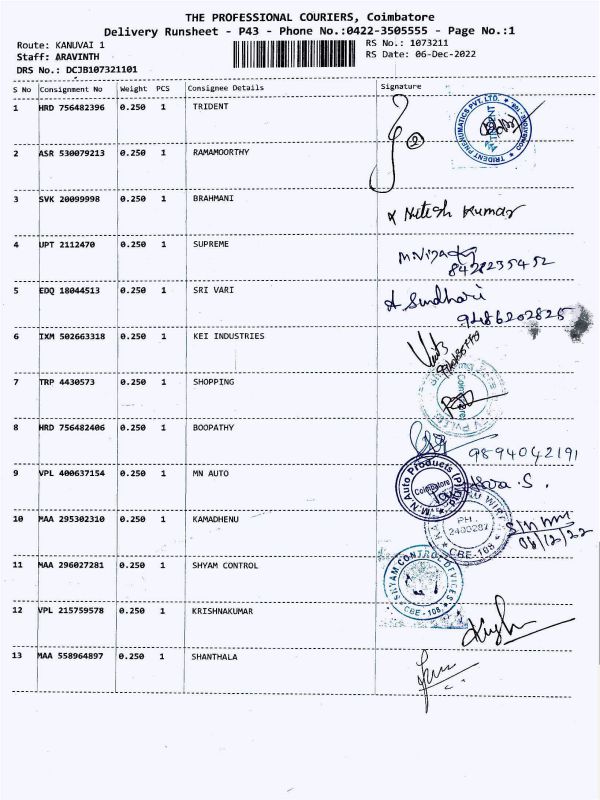 THE PROFESSIONAL COURIERS, Coimbatore
Delivery Runsheet - P43 - Phone No.:0422-3505555 - Page No.:1
Route: KANUVAI 1
RS No.: 1073211
Staff: ARAVINTH
RS Date: 06-Dec-2022
DRS No.: DCJB107321101
S No Consignment No Weight PCS Consignee Details Signature
1 HRD 756482396 0.250 1 TRIDENT
TRIDENT PNEUMATICS PVT. LTD.
2 ASR 530079213 0.250 1 RAMAMOORTHY
3 SVK 20099998 0.250 1 BRAHMANI Nitesh Kumar
4 UPT 2112470 0.250 1 SUPREME
5 EDQ 18044513 0.250 1 SRI VARI
9486202825
6 IXM 502663318 0.250 1 KEI INDUSTRIES
7 TRP 4430573 1 0.250 1 SHOPPING
8 HRD 756482406 0.250 1 BOOPATHY
9894042191
9 VPL 400637154 0.250 1 MN AUTO
M.N Auto Products (P)
Coimbatore
10 MAA 295302310 0.250 1 KAMADHENU
PH:
2400287
CBE-108
06/12/22
11 MAA 296027281 0.250 1 SHYAM CONTROL
SHYAM CONTROL DEVICES
CBE - 108
12 VPL 215759578 0.250 1 KRISHNAKUMAR
13 MAA 558964897 0.250 1 SHANTHALA